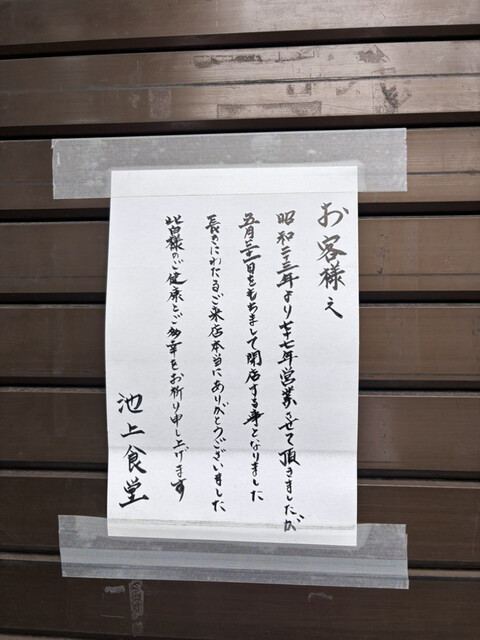 お客様え
昭和二十三年より七十七年営業させて頂きましたが
五月三十一日をもちまして閉店する事となりました
長きにわたるご来店本当にありがとうございました
皆様のご健康とご多幸をお祈り申し上げます
池上食堂